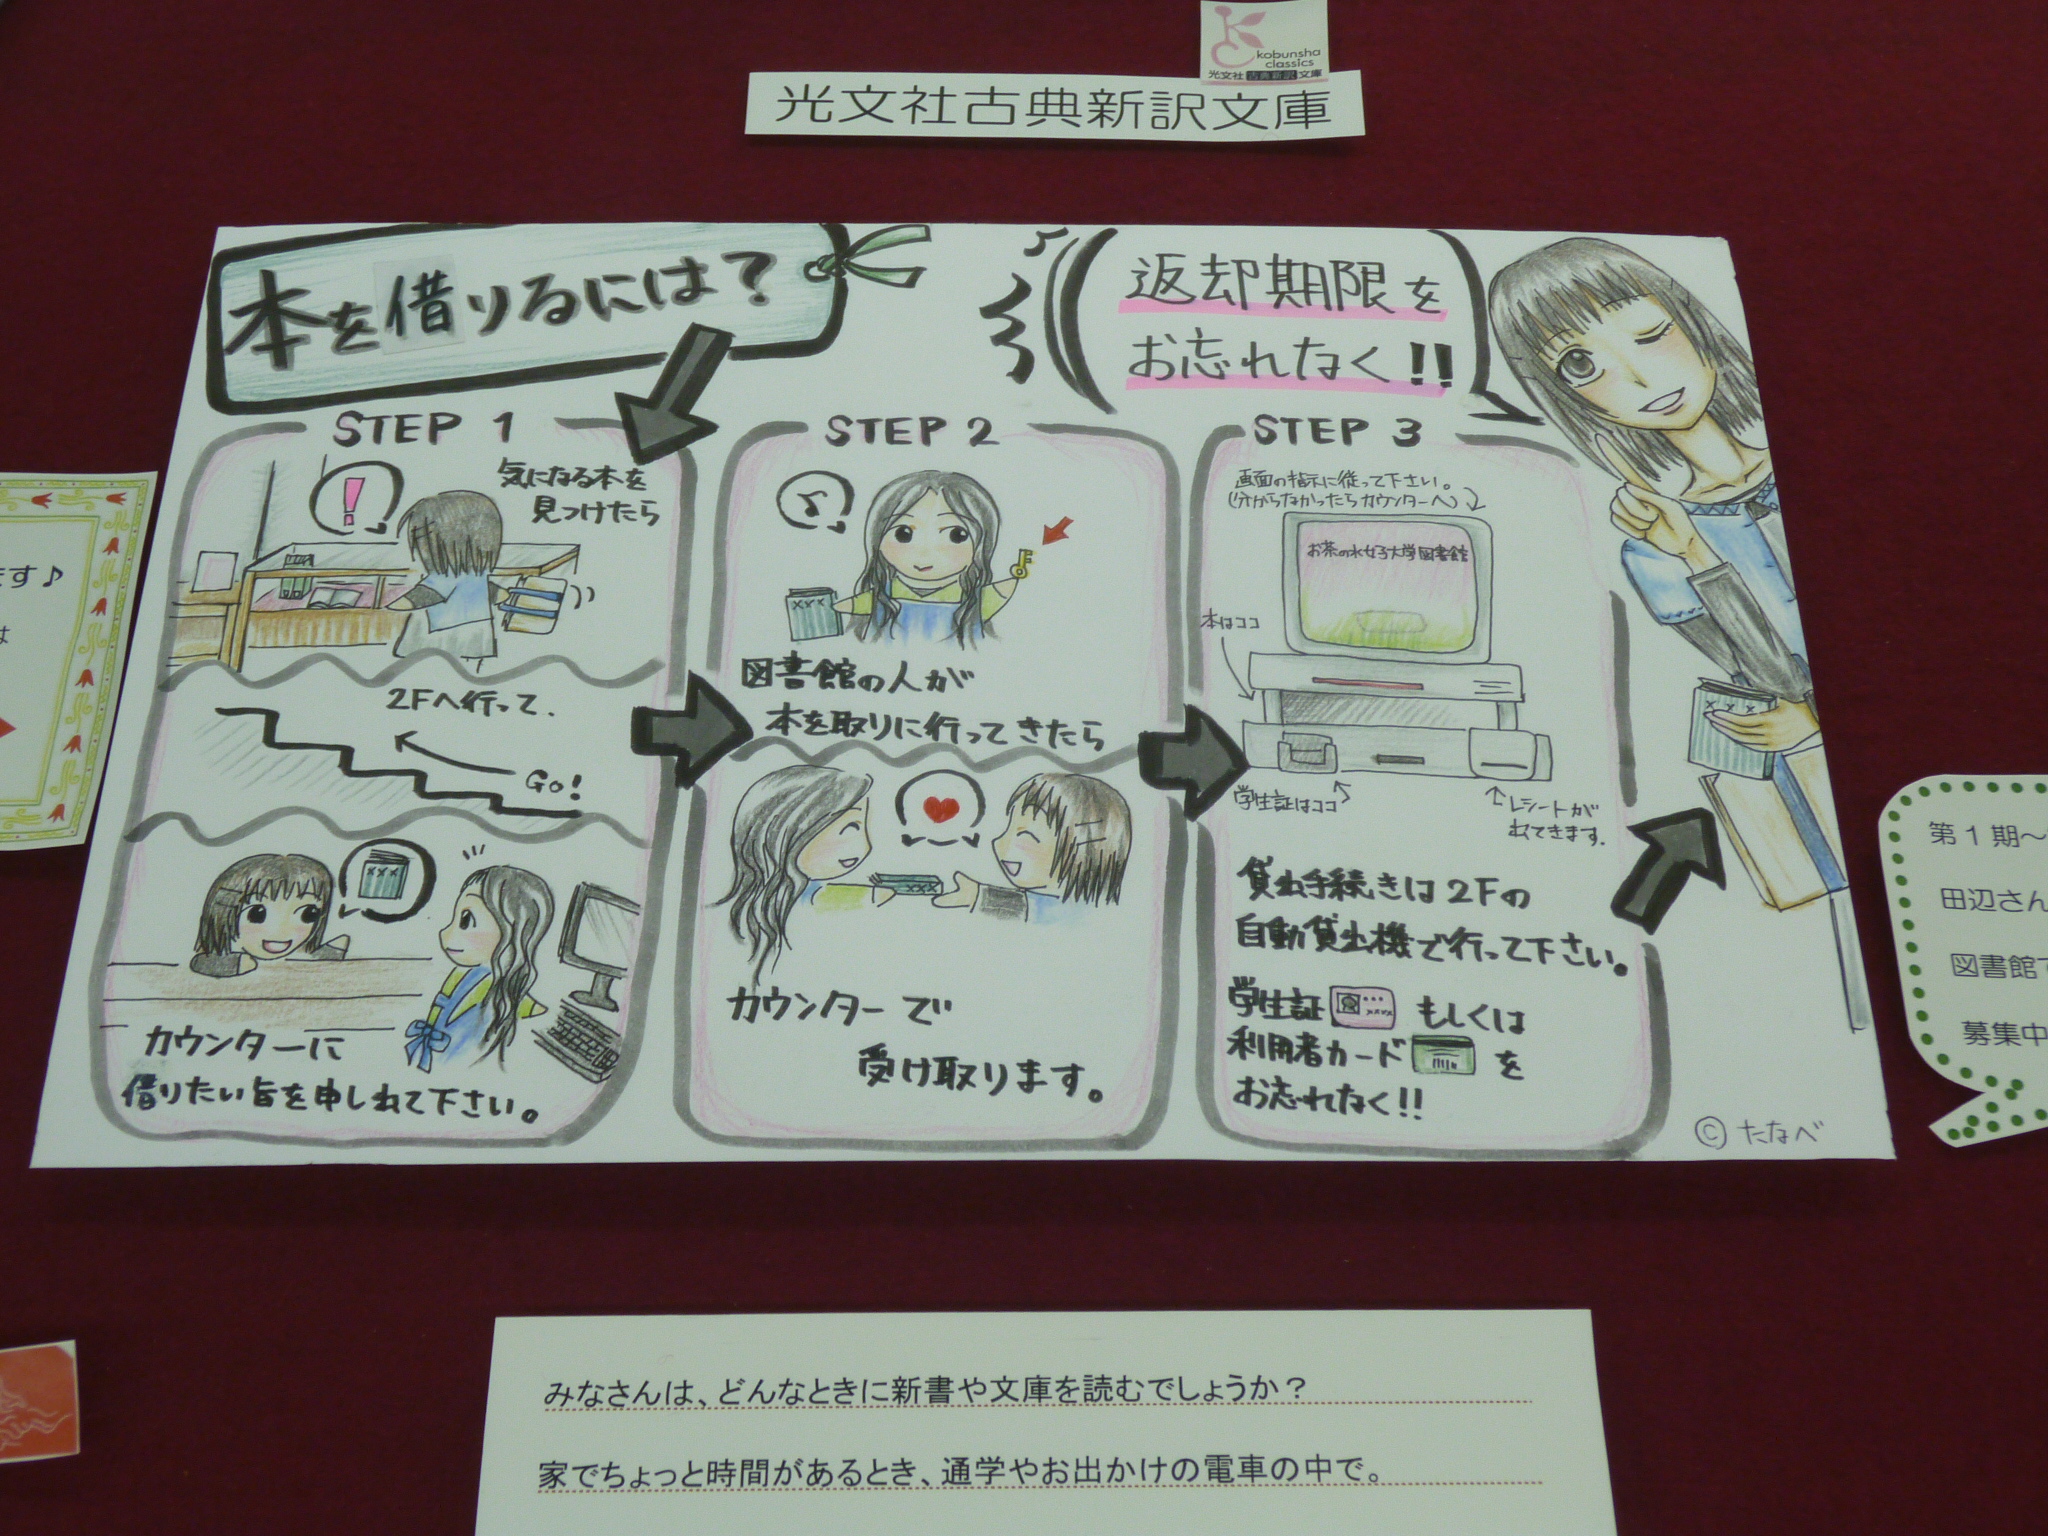 kobunsha
classics
光文社古典新訳文庫
光文社古典新訳文庫
本を借りるには?
返却期限を
お忘れなく!!
STEP 1
気になる本を
見つけたら
2Fへ行って.
Go!
カウンターに
借りたい旨を申しれて下さい。
STEP 2
図書館の人が
本を取りに行ってきたら
カウンターで
受け取ります。
STEP 3
画面の指示に従って下さい。
(分からなかったらカウンターへ)
お茶の水女子大学図書館
本はココ
学生証はココ
レシートが
でてきます.
貸出手続きは2Fの
自動貸出機で行って下さい。
学生証 もしくは
利用者カード を
お忘れなく!!
© たなべ
ます♪
は
第1期~
田辺さん
図書館で
募集中
みなさんは、どんなときに新書や文庫を読むでしょうか?
家でちょっと時間があるとき、通学やお出かけの電車の中で。